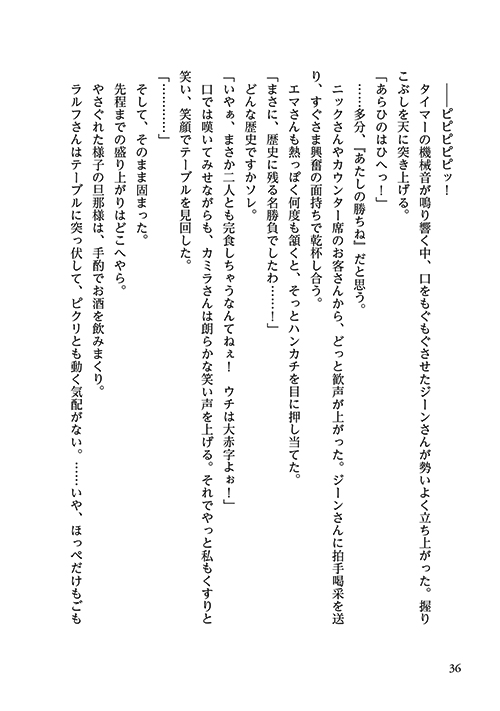 ――ピピピピピッ！
タイマーの機械音が鳴り響く中、口をもぐもぐさせたジーンさんが勢いよく立ち上がった。握り
こぶしを天に突き上げる。
「あらひのはひへっ！」
……多分、『あたしの勝ちね』だと思う。
ニックさんやカウンター席のお客さんから、どっと歓声が上がった。ジーンさんに拍手喝采を送
り、すぐさま興奮の面持ちで乾杯し合う。
エマさんも熱っぽく何度も頷くと、そっとハンカチを目に押し当てた。
「まさに、歴史に残る名勝負でしたわ……！」
どんな歴史ですかソレ。
「いやぁ、まさか二人とも完食しちゃうなんてねぇ！　ウチは大赤字よぉ！」
口では嘆いてみせながらも、カミラさんは朗らかな笑い声を上げる。それでやっと私もくすりと
笑い、笑顔でテーブルを見回した。
「…………」
そして、そのまま固まった。
先程までの盛り上がりはどこへやら。
やさぐれた様子の旦那様は、手酌でお酒を飲みまくり。
ラルフさんはテーブルに突っ伏して、ピクリとも動く気配がない。……いや、ほっぺだけもごも
36